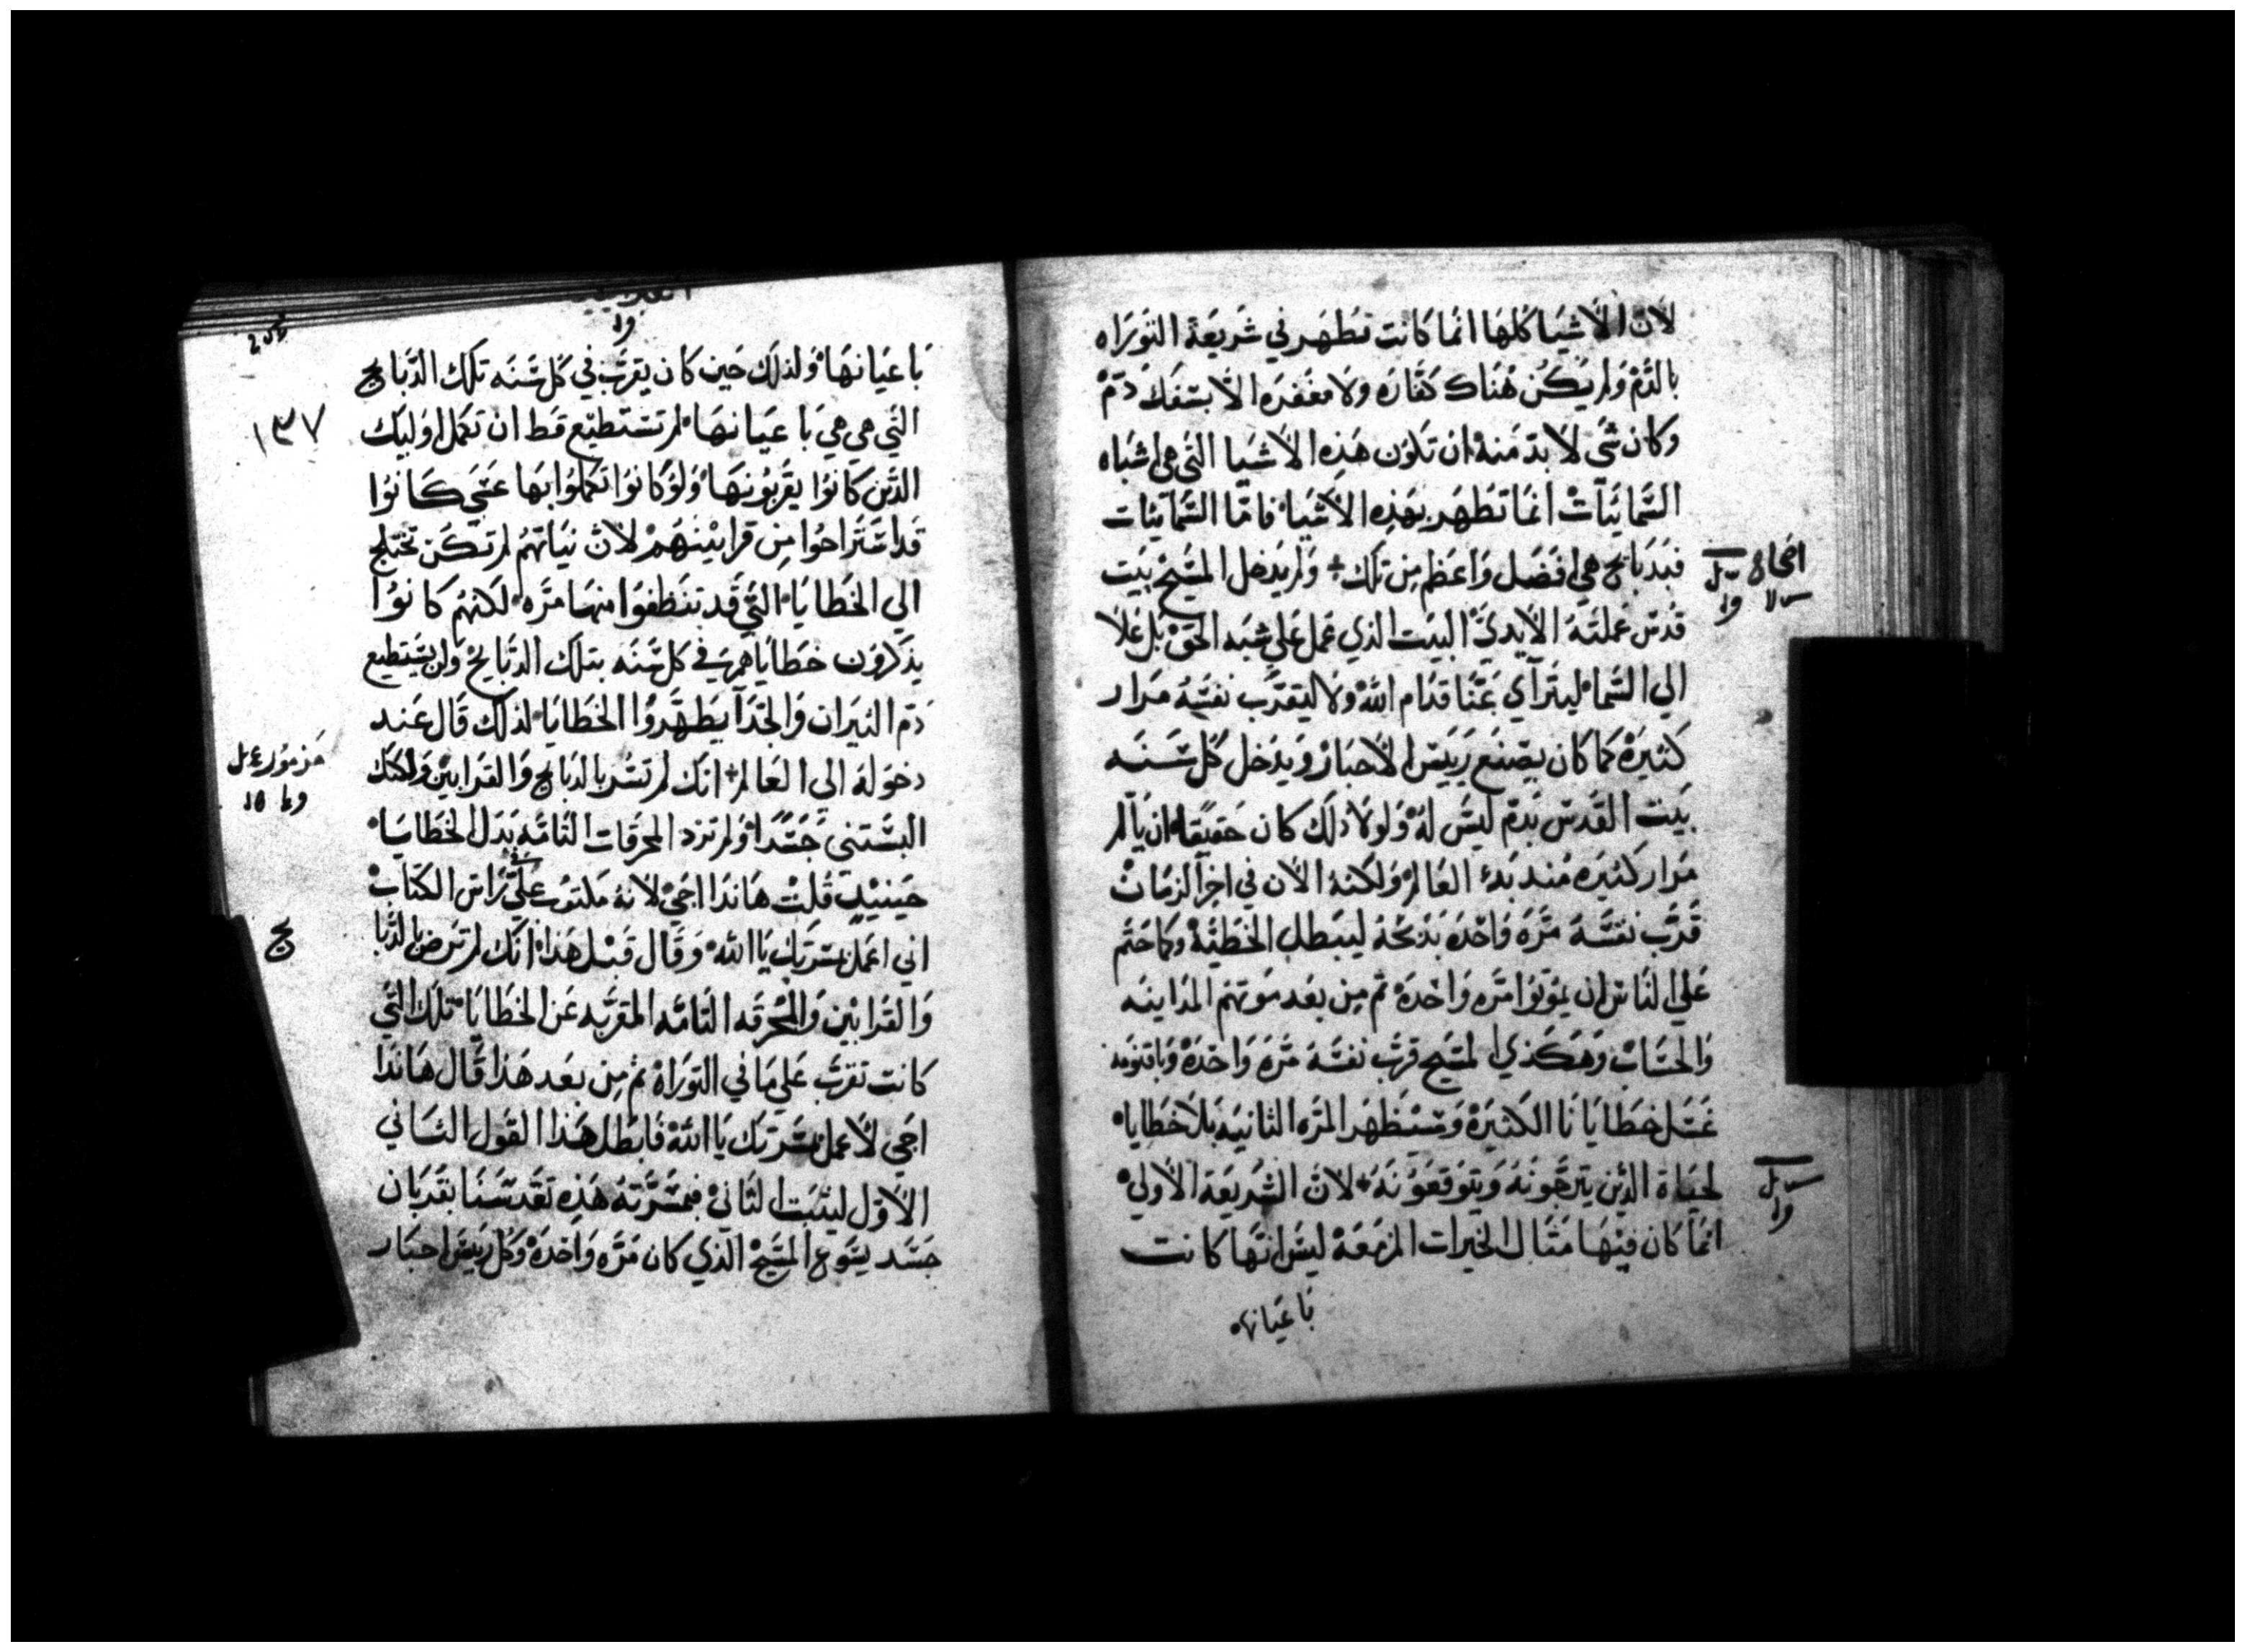 لاَنّ الاَشيَا كلهَا انمَا كاَنت تطَهَر في شَريعَة التَورَاه
بالدَّمْ وَلم يَكُن هُنَاك كفَّارَه ولَا مغفرَه الاَّ بسَفك دَمْ
وكان شَي لاَ بدّ منهْ ان تَكوُن هَذِه الاَشيَا التَي هي اشبَاه
السَّمَائيَات انمَا تطَهَر بهَذِه الاَشيَا فامّا السَّمائيات
فبدَبَايح هي افضَل وَاعظَم مِن تلك + وَلم يَدخل المسَيحْ بيَت
قدُسْ عَملتَهُ الاَيدي البيَت الذي عمل عَلي شبه الحَقْ بَل عَلاَ
الي السَّمَا ليتَرآي عَنَّا قدَام اللهْ ولاَ ليقرَّب نفسَه مَرار
كثيرَهْ كمَا كان يصَنع رَييَس الاَحبَارْ وَيدَخل كل سَنَه
بيَت القدُس بدَم ليسَ لهْ وَلولاَ ذلك كان حَقيقًا ان يَالم
مَرار كثيرَه مُنذ بَدء العَالم وَلكنهُ الاَن في اخِر الزمَان
قرَّب نفسَهُ مَّرة وَاحدَه بذَبحهْ ليبَطل الخَطيَّهْ وكماحتم
عَلي النَاس ان يمَوتوُا مرَه وَاحدَهْ ثم مِن بعَد مَوتهَم المدَاينه
وَالحسَابْ وَهَكذي المسَيح قرَّب نفسَهُ مَرَّه وَاحدَهْ وَباقنومه
غسَل خطَايَانَا الكثيرَهْ وَسَيظهَر المرَه الثانيَه بَلاَ خطَايا
لحيَاة الذَين يَترجَّونهُ وَيتوَقعَونَهُ + لاَنّ الشَريعَة الاَولي
انمَا كان فيهَا مثَال الخيرات المزمَعَهْ ليسَ انهَّا كانت
بَا عيَانها
افحاح
بَا عيَانهَا وَلذلك حَين كان يقرَّب في كل سَنَه تلك الذَبَايح
التَي هي هي بَا عيَانهَا لم تسَتطيَع قط ان تكمل اوليَك
الذَين كانوُا يقَربوُنهَا وَلوْ كانوُا تكملوُا بهَا عَسَي كانوُا
قدَ اسَترَاحوُا مِن قرابيَنهَمْ لاَنّ نيَاتهَم لم تكَن تختلج
الي الخطَايَا التَي قَد تنَظفوُا منهَا مَرَّه لكنهُم كانوُا
يذكرَوُن خطَايَاهم في كل سَنَه بتلك الذَبَايحْ وَلن يسَتطيع
دَم التيرَان وَالجدَآ يطَهّروُا الخطَايَا لذلك قال عَند
دخوَله الي العَالم + انك لم تسُر بالذَبَايح وَالقرَابين وَلكنك
البسَتني جَسَدًا وَلم تزد المحرقات التَامَّه بَدل الخطَايَا
حيَنيذٍ قلتْ هَانذَا اجَي لاَنهُ مكتوَب عَليَّ في رَاس الكتَابْ
اني اعمَل مسَرتك يَا اللهْ وَقال قبَل هَذا انك لم ترَض بالذَّبَا
ج
وَالقرَابين وَالمحرقه التَامَّه المقرَّبه عَن الخطَايَا تلك التَي
كانت تقرَّب عَلي مَا في التوَرَاهْ ثم مِن بعَد هَذا قال هَانذَا
اجَي لاَعمَل مسَرتك يَا اللهْ فابطَل هَذا القوَل الثاني
الاَوَل ليثبَت الثَانيْ فبمسَرَّته هَذِه تقدَسَنَا بقربَان
جسَد يسَوع المسَيح الذي كان مَرَّه وَاحدَهْ وكل رييَس احبَار
١٣٧
مَزمُور
يح